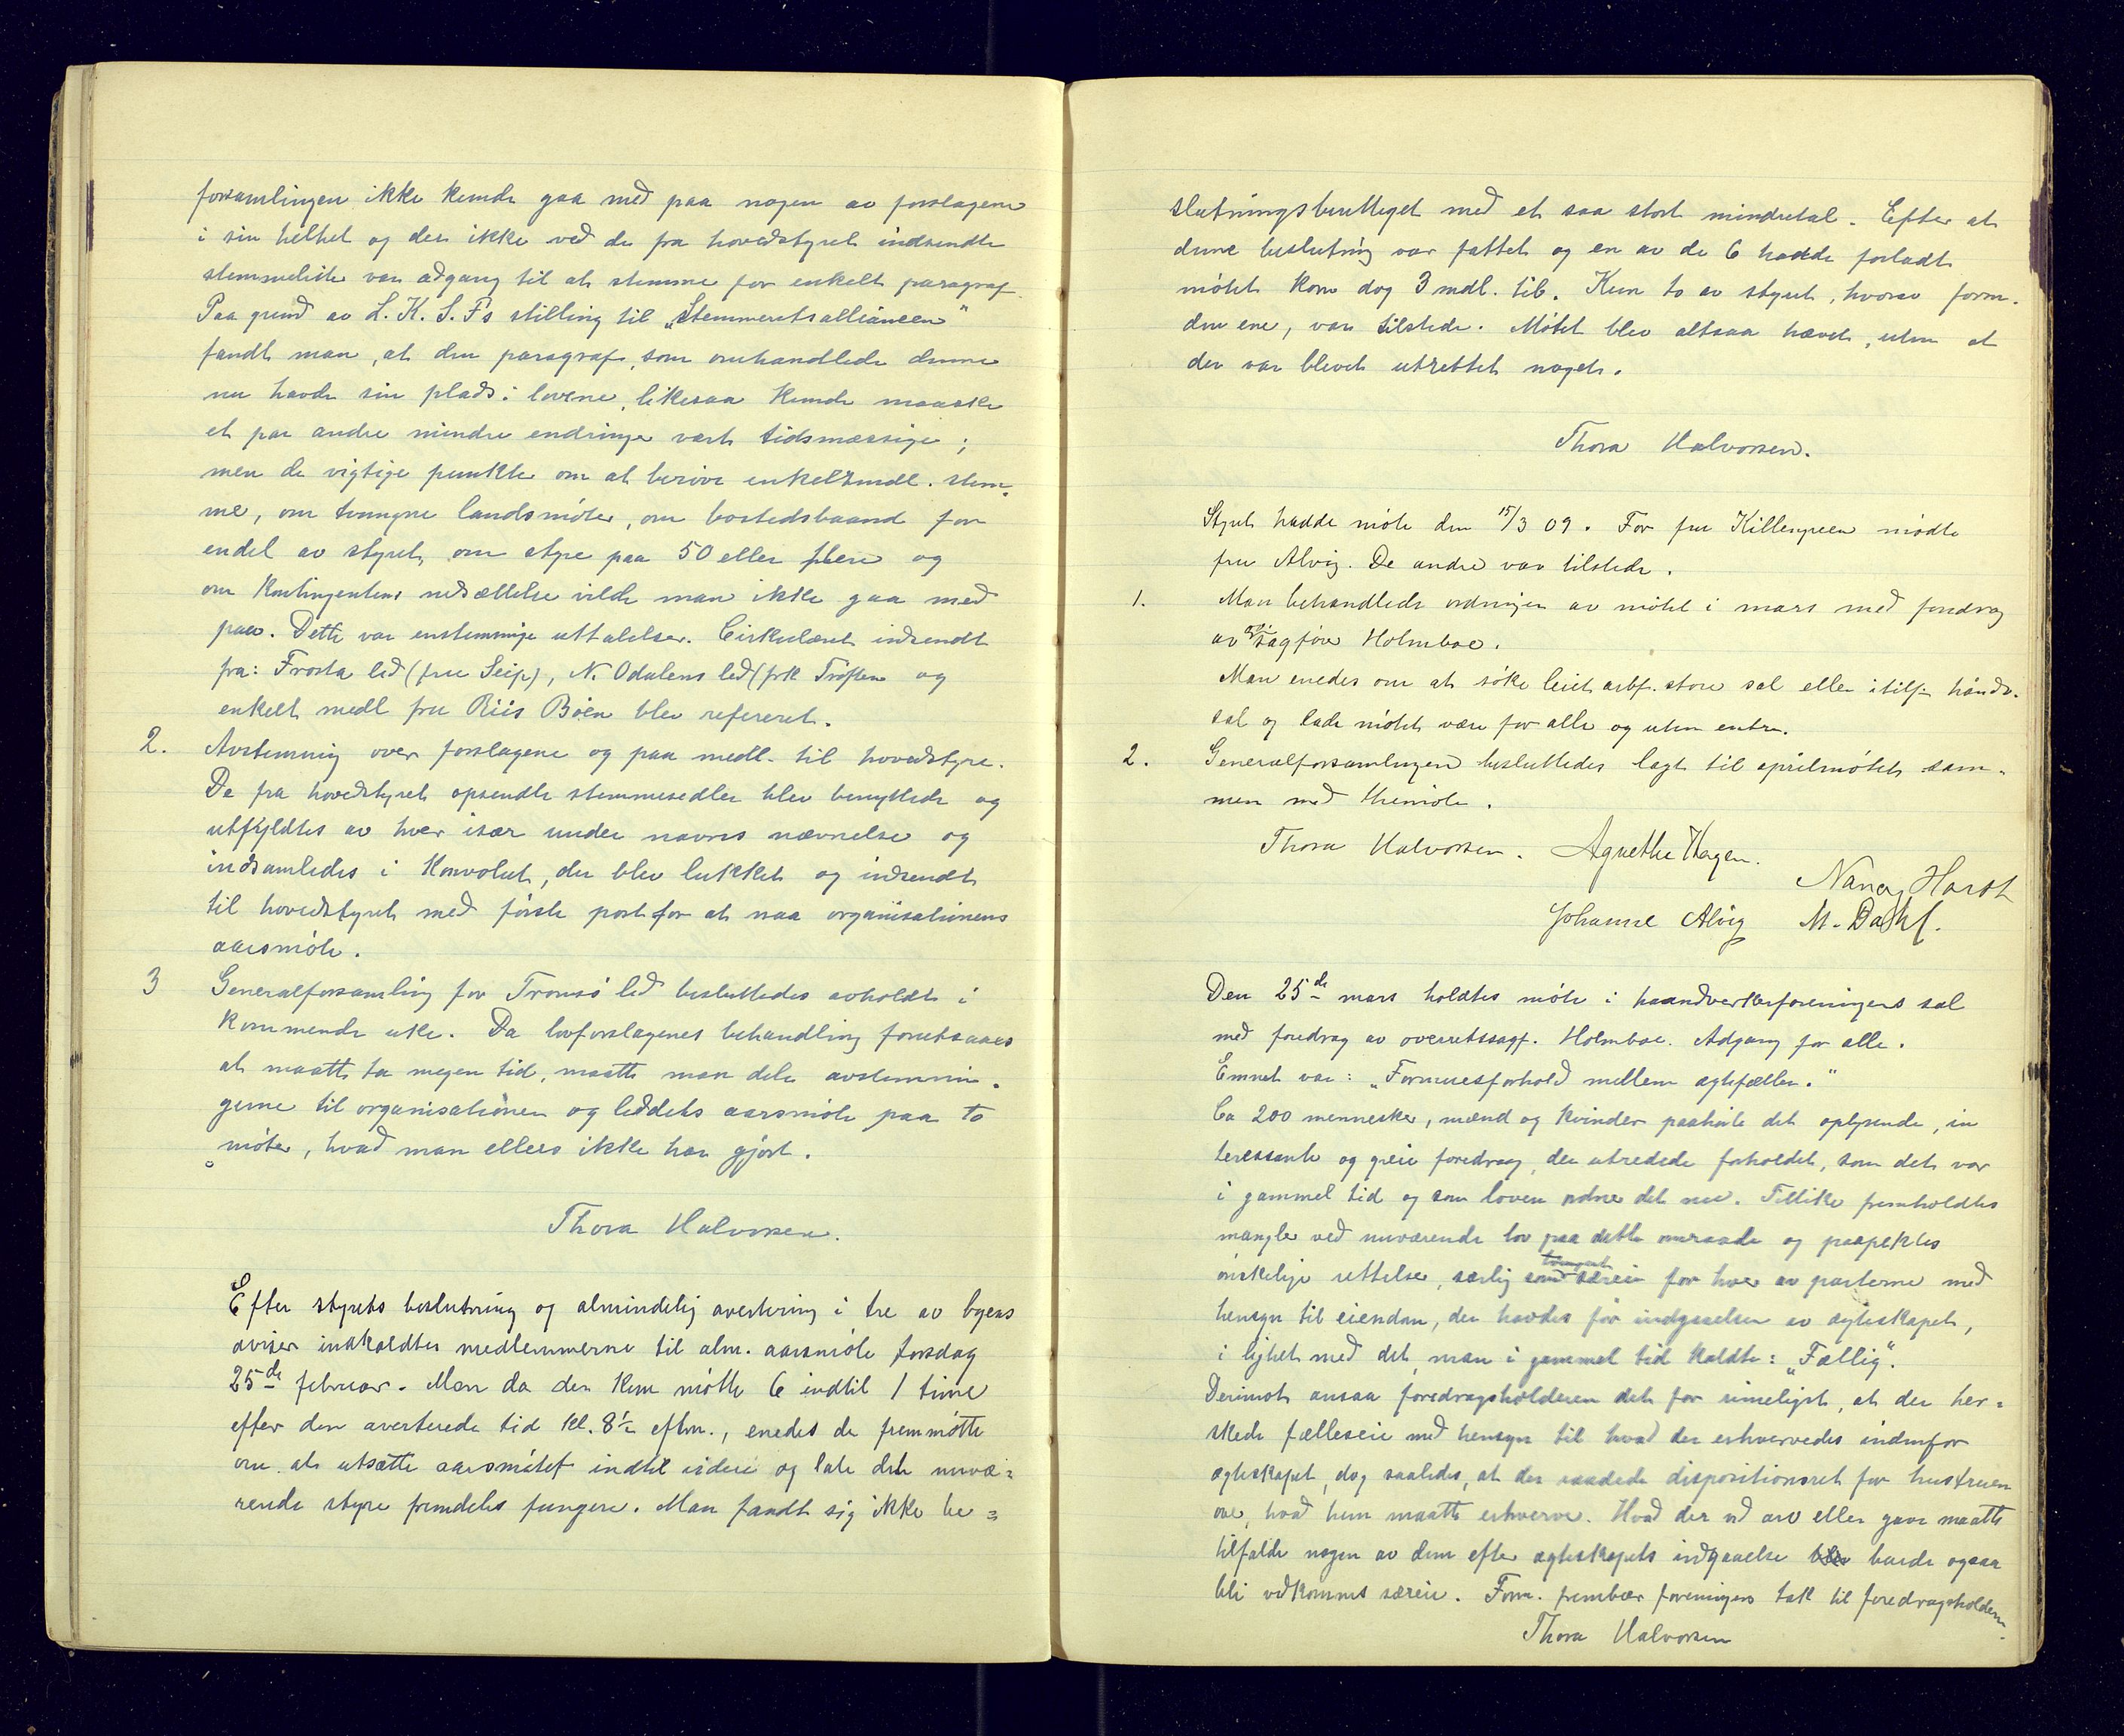 forsamlingen ikke kunde gaa med paa nogen av forslagene
i sin helhet og der ikke ved de fra hovedstyret indsendte
stemmelister var adgang til at stemme for enkelt paragraf.
Paa grund av L.K.S.Fs stilling til „Stemmeretsalliancen"
fandt man, at den paragraf, som omhandlede denne
nu havde sin plads i lovene, likesaa kunde maaske
et par andre mindre endringer være tidsmæssige;
men de vigtige punkter om at berøve enkeltmedl. stem-
me, om tvungne landsmøter, om bostedsbaand for
endel av styret, om styre paa 50 eller flere og
om kontingentens nedsættelse vilde man ikke gaa med
paa. Dette var enstemmige uttalelser. Cirkulæret indsendt
fra: Frosta led (fru Seip), N. Odalens led (frk Trøften og
enkelt medl fru Riis Bøen blev refereret.
2. Avstemning over forslagene og paa medl. til hovedstyre.
De fra hovedstyret opsendte stemmesedler blev benyttede og
utfyldtes av hver især under navns nævnelse og
indsamledes i Konvolut, der blev lukket og indsendt
til hovedstyret med første post for at naa organisationens
aarsmøte.
3 Generalforsamling for Tromsø led besluttedes avholdt i
kommende uke. Da lovforslagenes behandling forutsaaes
at maatte ta megen tid, maatte man dele avstemnin-
gerne til organisationen og leddets aarsmøte paa to
møter, hvad man ellers ikke har gjort.
Thora Halvorsen.
Efter styrets beslutning og almindelig avertering i tre av byens
aviser indkaldtes medlemmerne til alm. aarsmøte torsdag
25de februar. Men da der kun møtte 6 indtil 1 time
efter den averterede tid kl. 8½ eftm., enedes de fremmøtte
om at utsætte aarsmøtet indtil videre og late det nuvæ=
rende styre fremdeles fungere. Man fandt sig ikke be=
slutningsberettiget med et saa stort mindretal. Efter at
denne beslutning var fattet og en av de 6 hadde forladt
møtet kom dog 3 medl. til. Kun to av styret, hvorav form.
den ene, var tilstede. Møtet blev altsaa hævet, uten at
der var blevet utrettet noget.
Thora Halvorsen.
Styret hadde møte den 15/3 09. For fru Killengreen mødte
fru Alvig. De andre var tilstede.
1. Man behandlede ordningen av møtet i mars med foredrag
av sagfører Holmboe.
Man enedes om at søke leiet arbf. store sal eller i tilf. håndv.
sal og lade møtet være for alle og uten entre.
2. Generalforsamlingen besluttedes lagt til aprilmøtet sam-
men med themøte.
Thora Halvorsen. Agnethe Hagen.
Nancy Horst
Johanne Alvig M. Dahl.
Den 25de mars holdtes møte i haandverkerforeningens sal
med foredrag av overretssagf. Holmboe. Adgang for alle.
Emnet var: „Formuesforhold mellem egtefæller."
Ca 200 mennesker, mænd og kvinder paahørte det oplysende, in
teressante og greie foredrag, der utredede forholdet, som det var
i gammel tid og som loven ordner det nu. Tillike fremholdtes
mangler ved nuværende lov paa dette omraade og paapektes
ønskelige rettelser, særlig tvungent særeie for hver av parterne med
hensyn til eiendom, der havdes før indgaaelsen av egteskapet,
i lighet med det man i gammel tid kaldte: „Fællig".
Derimot ansaa foredragsholderen det for rimeligst, at der her=
skede fælleseie med hensyn til hvad der erhvervedes indenfor
egteskapet, dog saaledes, at der raadede dispositionsret for hustruen
over, hvad hun maatte erhverve. Hvad der ved arv eller gave maatte
tilfalde nogen av dem efter egteskapets indgaaelse burde ogsaa
bli vedkommes særeie. Form. frembar foreningens tak til foredragsholderen.
Thora Halvorsen